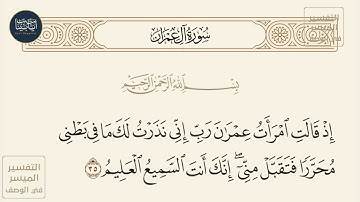 سُورَةُ آلِ عِمْرَانَ
بِسْمِ اللَّهِ الرَّحْمَٰنِ الرَّحِيمِ
إِذْ قَالَتِ ٱمْرَأَتُ عِمْرَٰنَ رَبِّ إِنِّى نَذَرْتُ لَكَ مَا فِى بَطْنِى
مُحَرَّرًا فَتَقَبَّلْ مِنِّىٓ ۖ إِنَّكَ أَنتَ ٱلسَّمِيعُ ٱلْعَلِيمُ ٣٥
التفسير
الميسر
في الوصف
التفسير
الميسر
في الوصف